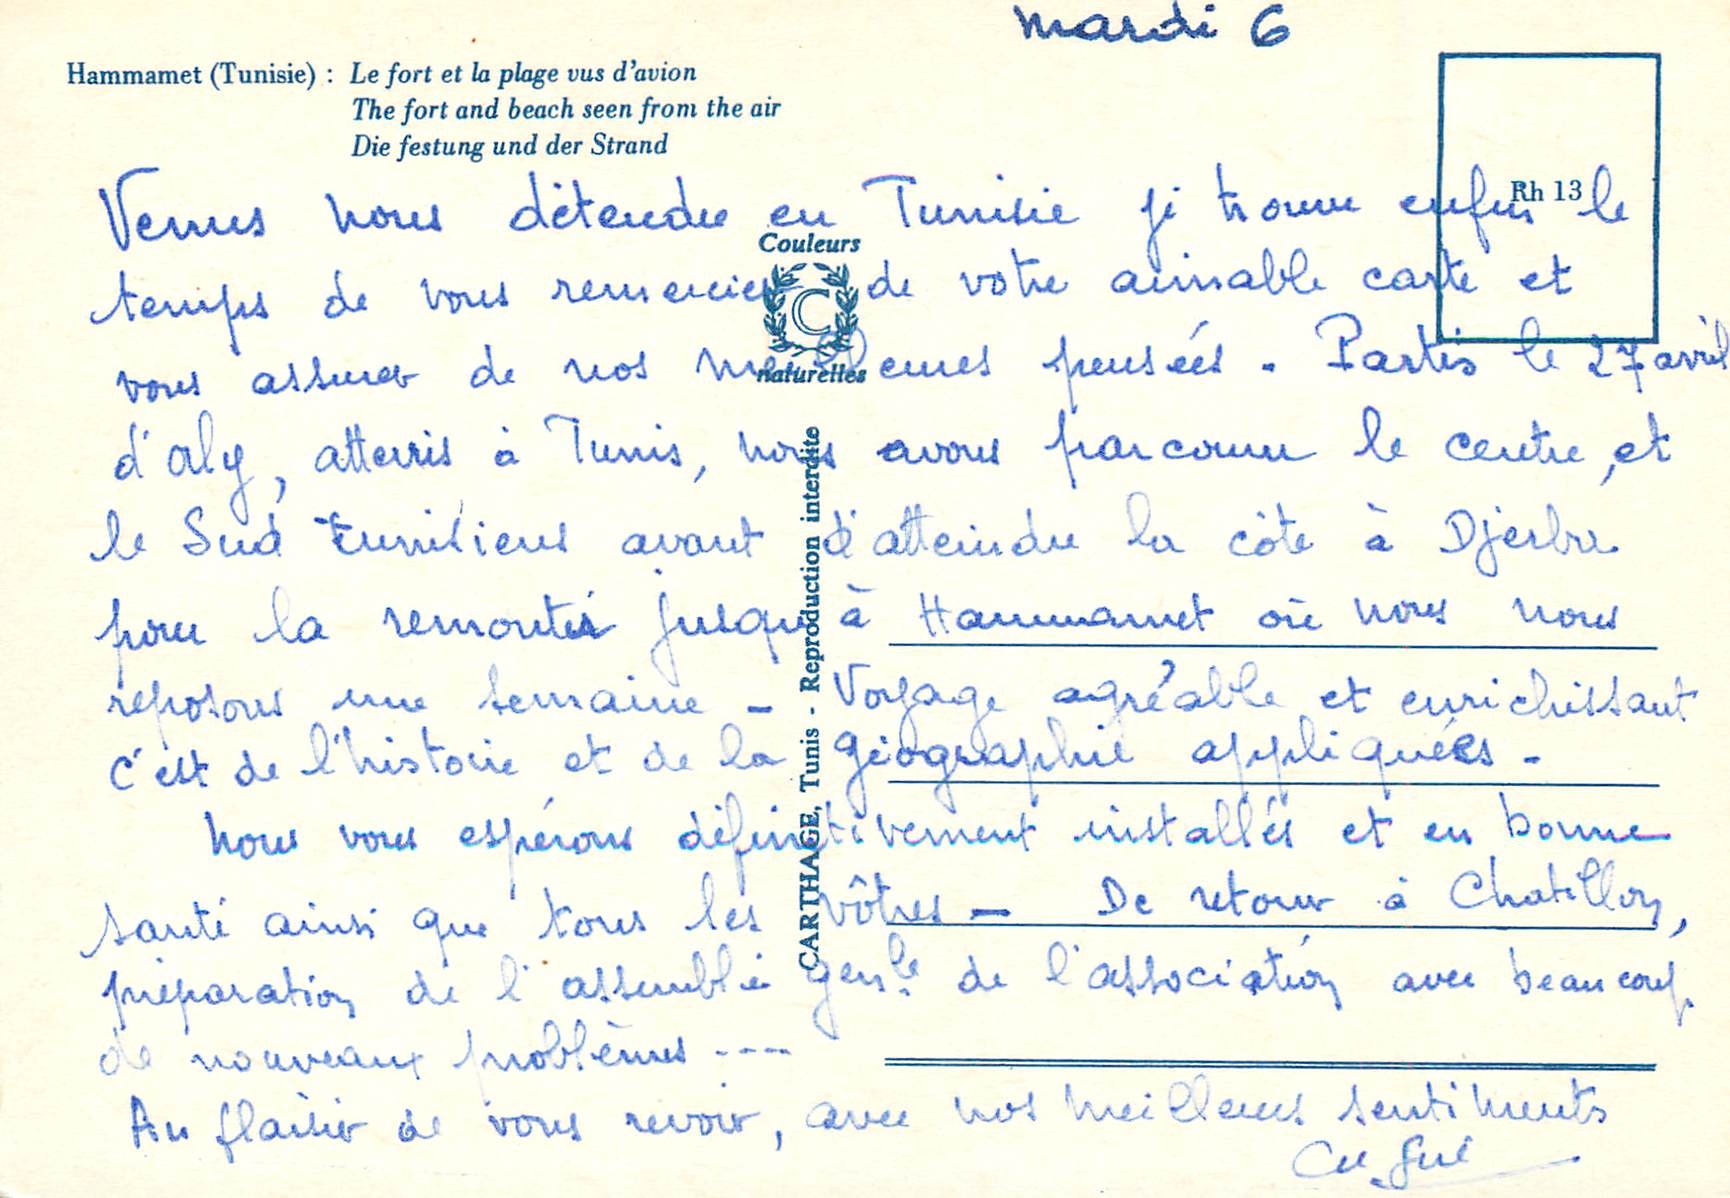 mardi 6
Hammamet (Tunisie) : Le fort et la plage vus d'avion
The fort and beach seen from the air
Die festung und der Strand
Rh 13
Venus nous détendre en Tunisie je trouve enfin le
temps de vous remercier de votre aimable carte et
vous assurer de nos meilleures pensées - Partis le 27 avril
d'Orly, atterris à Tunis, nous avons parcouru le centre, et
le Sud tunisiens avant d'atteindre la côte à Djerba
pour la remonter jusqu'à Hammamet où nous nous
reposons une semaine - Voyage agréable et enrichissant
c'est de l'histoire et de la géographie appliquées -
Nous vous espérons définitivement installés et en bonne
santé ainsi que tous les vôtres - De retour à Chatillon,
préparation de l'assemblée genle de l'association avec beaucoup
de nouveaux problèmes ----
Au plaisir de vous revoir, avec nos meilleurs sentiments
Couleurs
C
naturelles
CARTHAGE, Tunis - Reproduction interdite